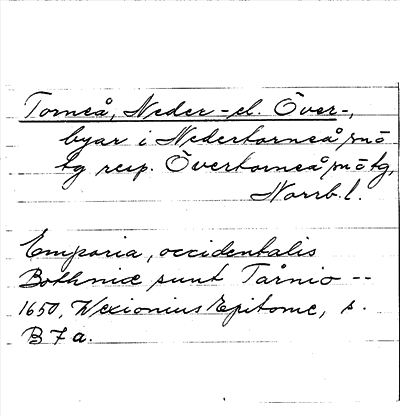 Torneå, Neder- el. Över-,
byar i Nedertorneå snö
tg resp. Övertorneå snö tg,
Norrb. l.
Emporia, occidentalis
Bothniæ sunt Tårnio --
1650, Wexionius Epitome, s.
B 7 a.